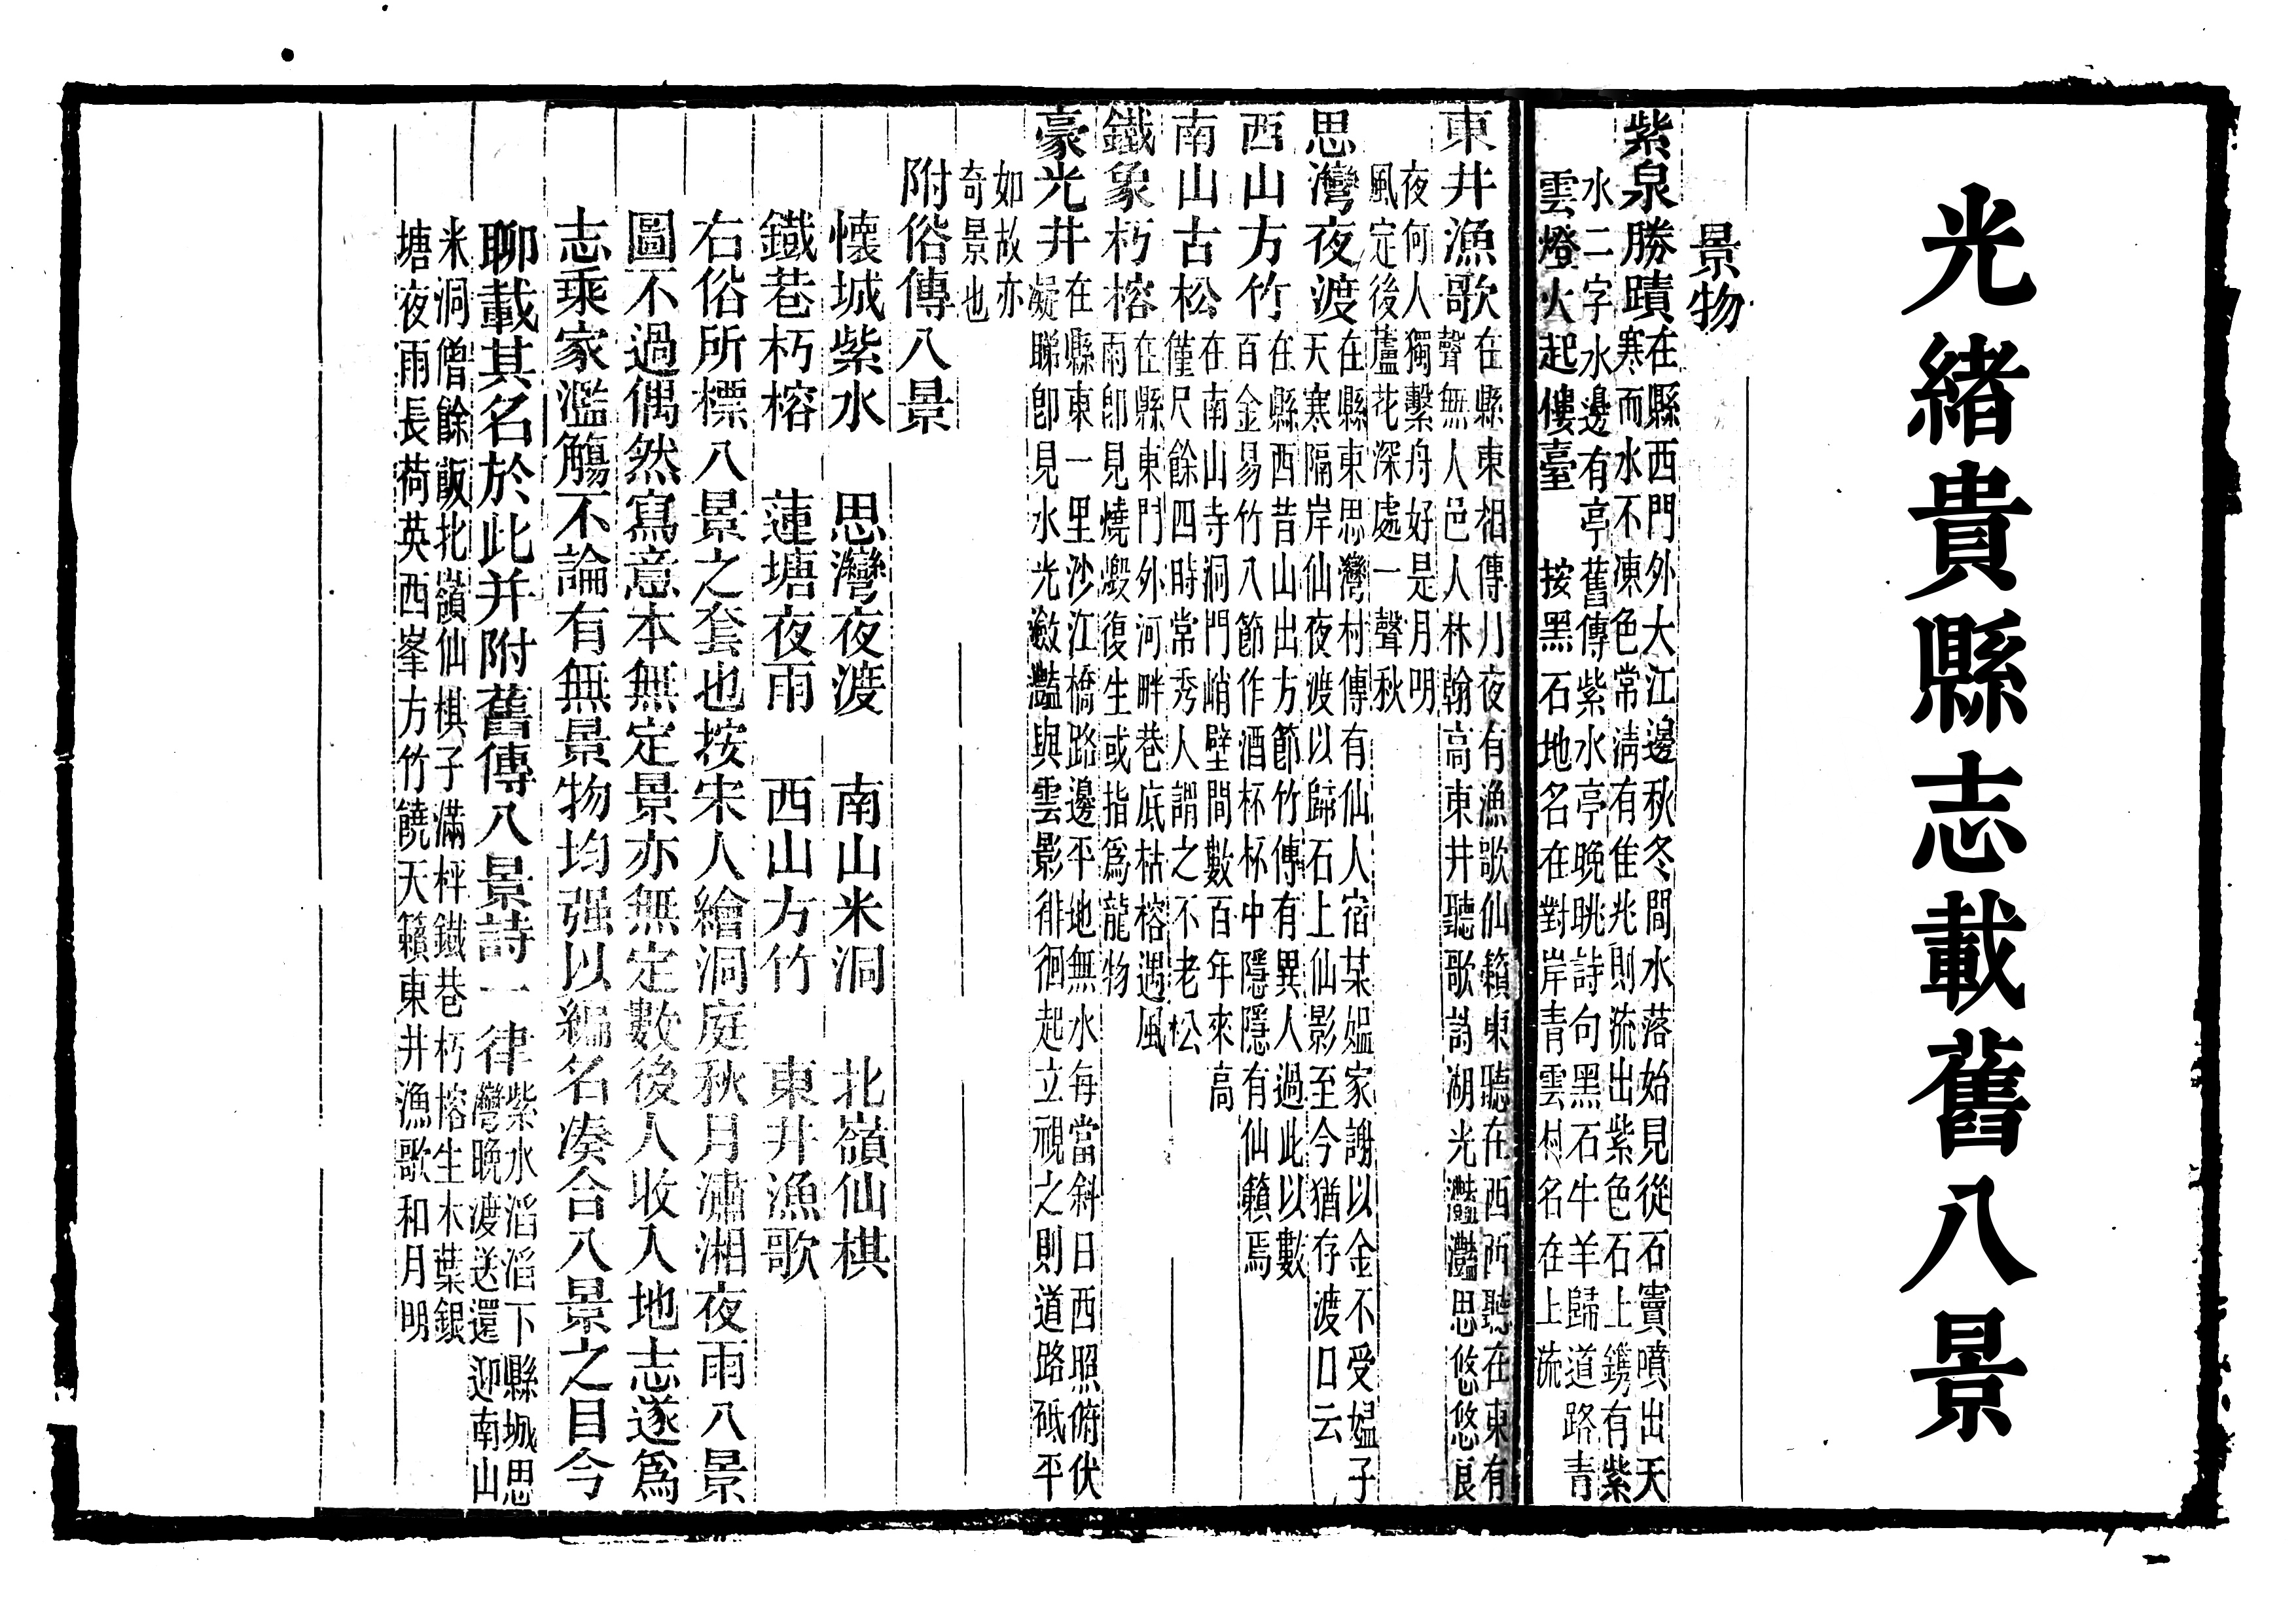 光緒貴縣志載舊八景
景物
紫泉勝蹟
在縣西門外大江邊秋冬間水落始見從石竇噴出天
寒而水不凍色常淸有佳兆則流出紫色石上鐫有紫
水二字水邊有亭舊傳紫水亭晚眺詩句黑石牛羊歸道路青
雲燈火起僂臺　按黑石地名在對岸青雲村名在上流
東井漁歌
在縣東相傳月夜有漁歌仙籟東聽在西西聽在東有
聲無人邑人林翰高東井聽歌詩湖光灎灎思悠悠良
夜何人獨繫舟好是月明
風定後蘆花深處一聲秋
思灣夜渡
在縣東思灣村傳有仙人宿某媼家謝以金不受媼子
天寒隔岸仙夜渡以歸石上仙影至今猶存渡口云
西山方竹
在縣西昔山出方節竹傳有異人過此以數
百金易竹八節作酒杯杯中隱隱有仙籟焉
南山古松
在南山寺洞門峭壁間數百年來高
僅尺餘四時常秀人謂之不老松
鐵象朽榕
在縣東門外河畔巷底枯榕遇風
雨卽見燒燬復生或指爲龍物
豪光井
在縣東一里沙江橋路邊平地無水每當斜日西照俯伏
凝睇卽見水光瀲灎與雲影徘徊起立視之則道路砥平
如故亦
奇景也
附俗傳八景
懷城紫水　思灣夜渡　南山米洞　北嶺仙棋
鐵巷朽榕　蓮塘夜雨　西山方竹　東井漁歌
右俗所標八景之套也按宋人繪洞庭秋月瀟湘夜雨八景
圖不過偶然寫意本無定景亦無定數後人收入地志遂爲
志乘家濫觴不論有無景物均强以編名凑合八景之目今
聊載其名於此并附舊傳八景詩一律
紫水滔滔下縣城思
灣晚渡送還迎南山
米洞僧餘飯北嶺仙棋子滿枰鐵巷朽榕生木葉銀
塘夜雨長荷英西峯方竹饒天籟東井漁歌和月明